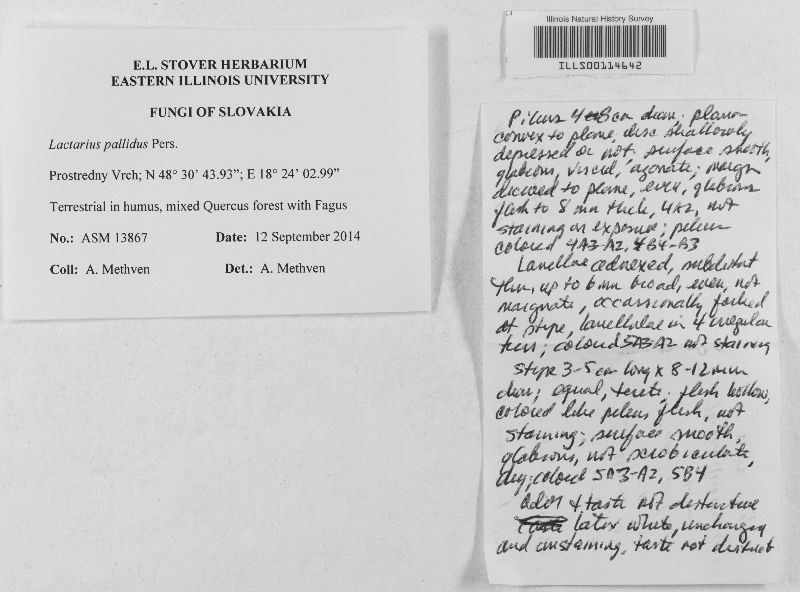 E.L. STOVER HERBARIUM
EASTERN ILLINOIS UNIVERSITY
FUNGI OF SLOVAKIA
Lactarius pallidus Pers.
Prostredny Vrch; N 48° 30' 43.93"; E 18° 24' 02.99"
Terrestrial in humus, mixed Quercus forest with Fagus
No.: ASM 13867 Date: 12 September 2014
Coll: A. Methven Det.: A. Methven
Illinois Natural History Survey
ILLS00114642
Pileus 4-8 cm diam. plano-
convex to plane, disc shallowly
depressed or not surface smooth,
glabrous, viscid, azonate; margin
decurved to plane, even, glabrous
flesh to 8 mm thick, 4A2, not
staining on exposure; pileus
colored 4A3-A2, 4B4-B3
Lamellae adnexed, subdistant
thin, up to 6 mm broad, even, not
marginate, occassionally forked
at stipe, lamellulae in 4 irregular
tiers; colored 5A3-A2 not staining
Stipe 3-5 cm long x 8-12 mm
diam; equal, terete, flesh hollow,
colored like pileus flesh, not
staining; surface smooth,
glabrous, not scrobiculate,
dry; colored 5A3-A2, 5B4
Odor & taste not distinctive
latex white, unchanging
and unstaining, taste not distinct